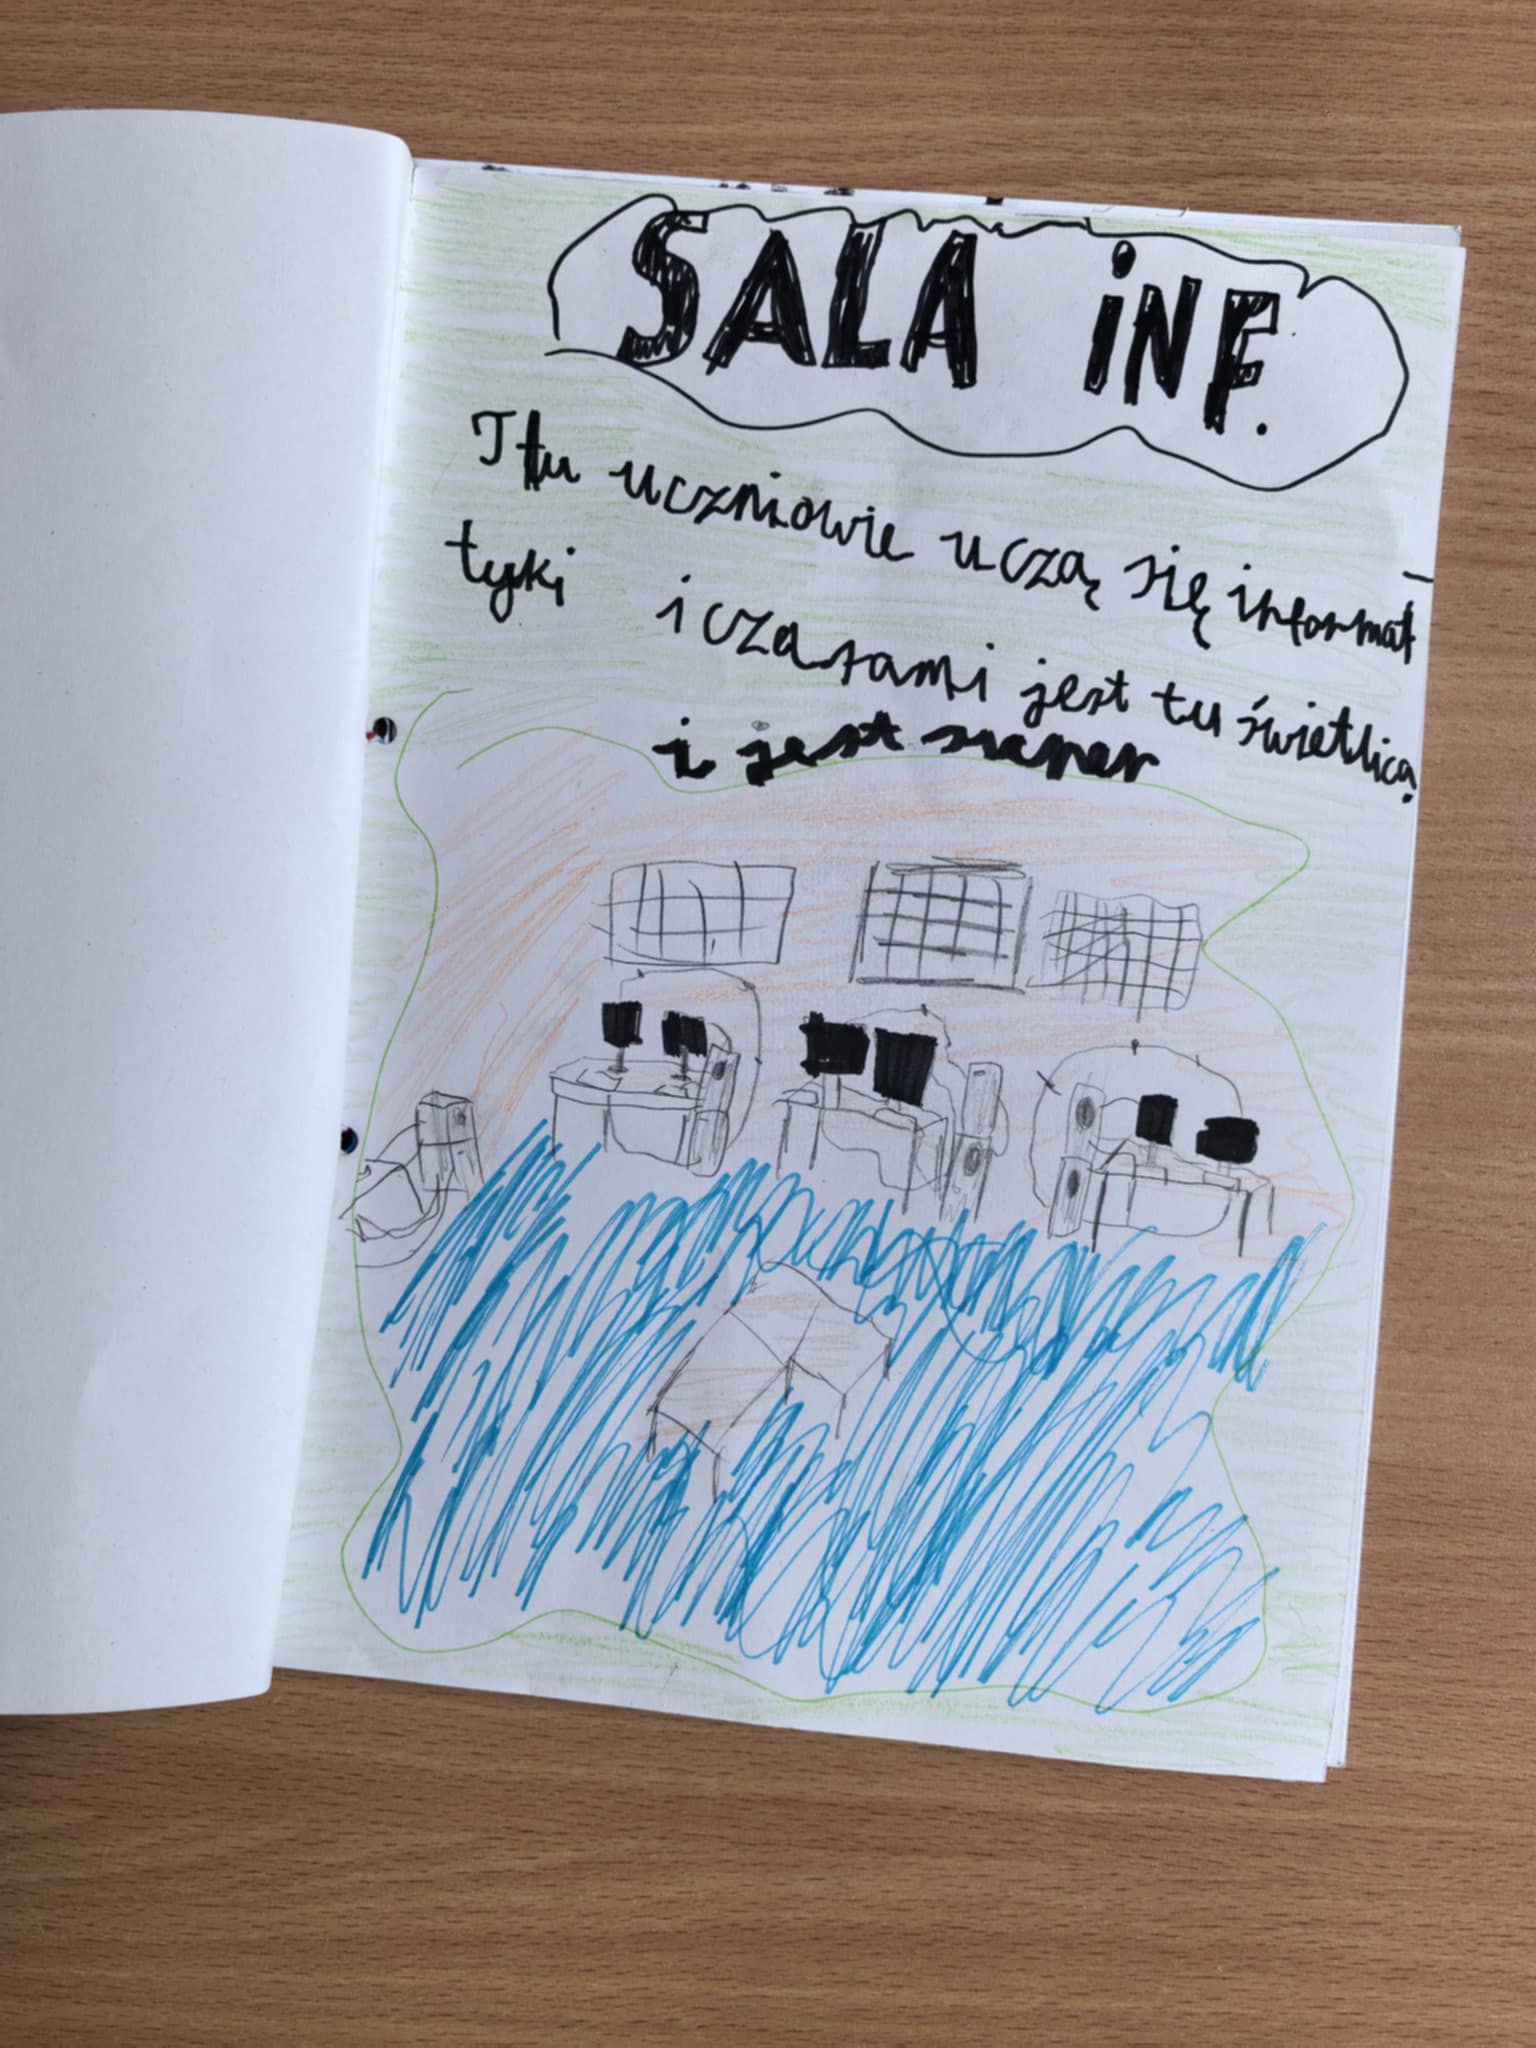 SALA iNF.
Ttu uczniowie uczą się informat-
tyki i czasami jest tu świetlica
i jest super